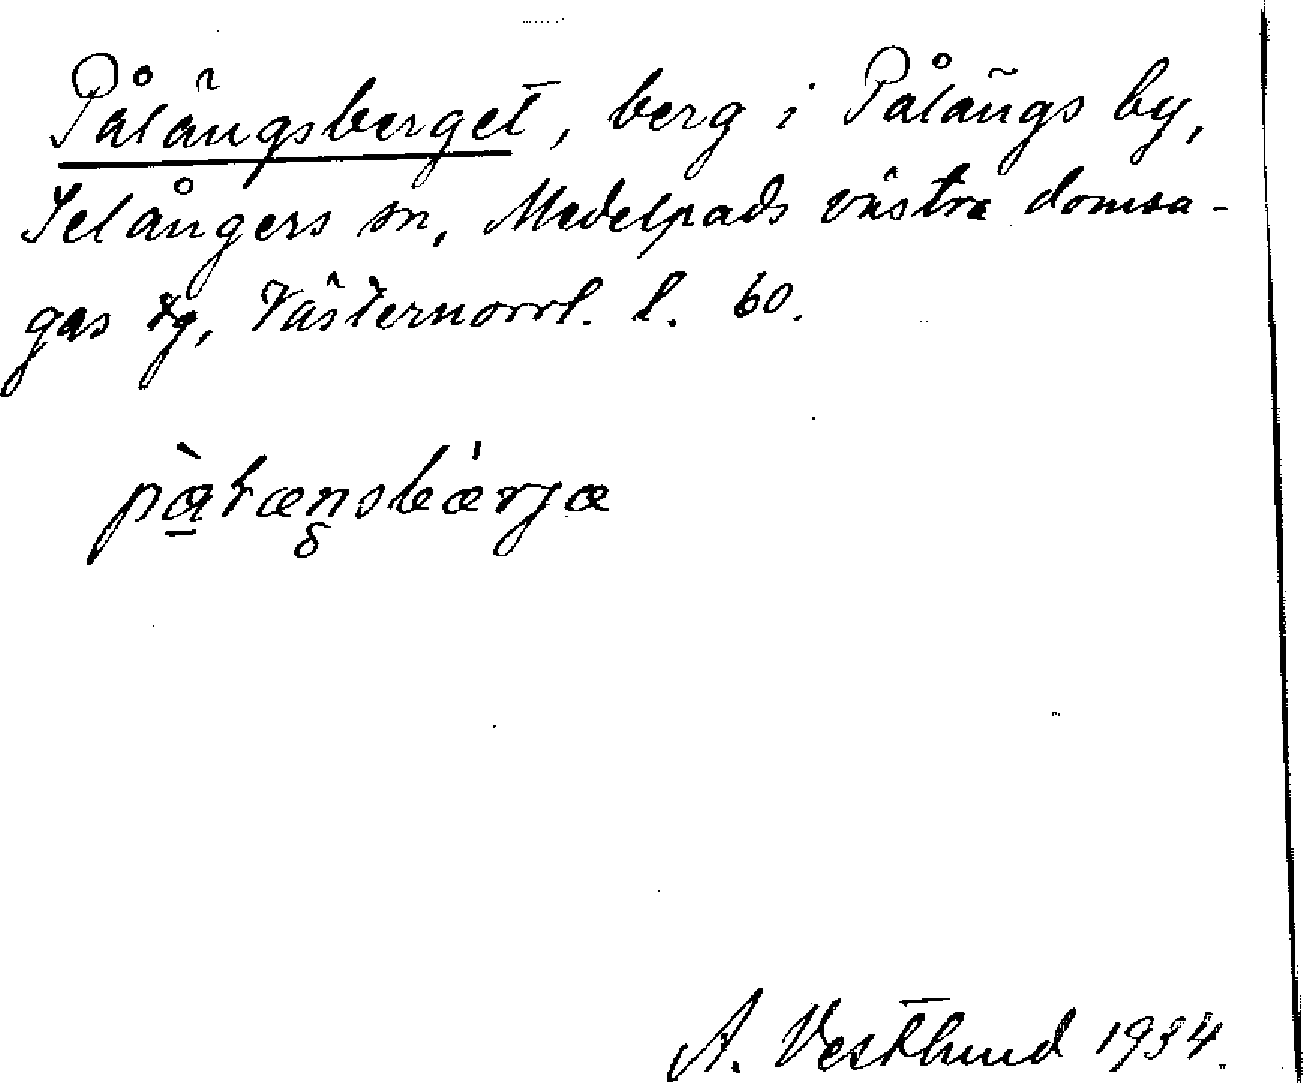 Pålängsberget, berg i Pålängs by,
Selångers sn, Medelpads västra domsa-
gas tg, Västernorrl. l. 60.
A. Vestlund 1934.